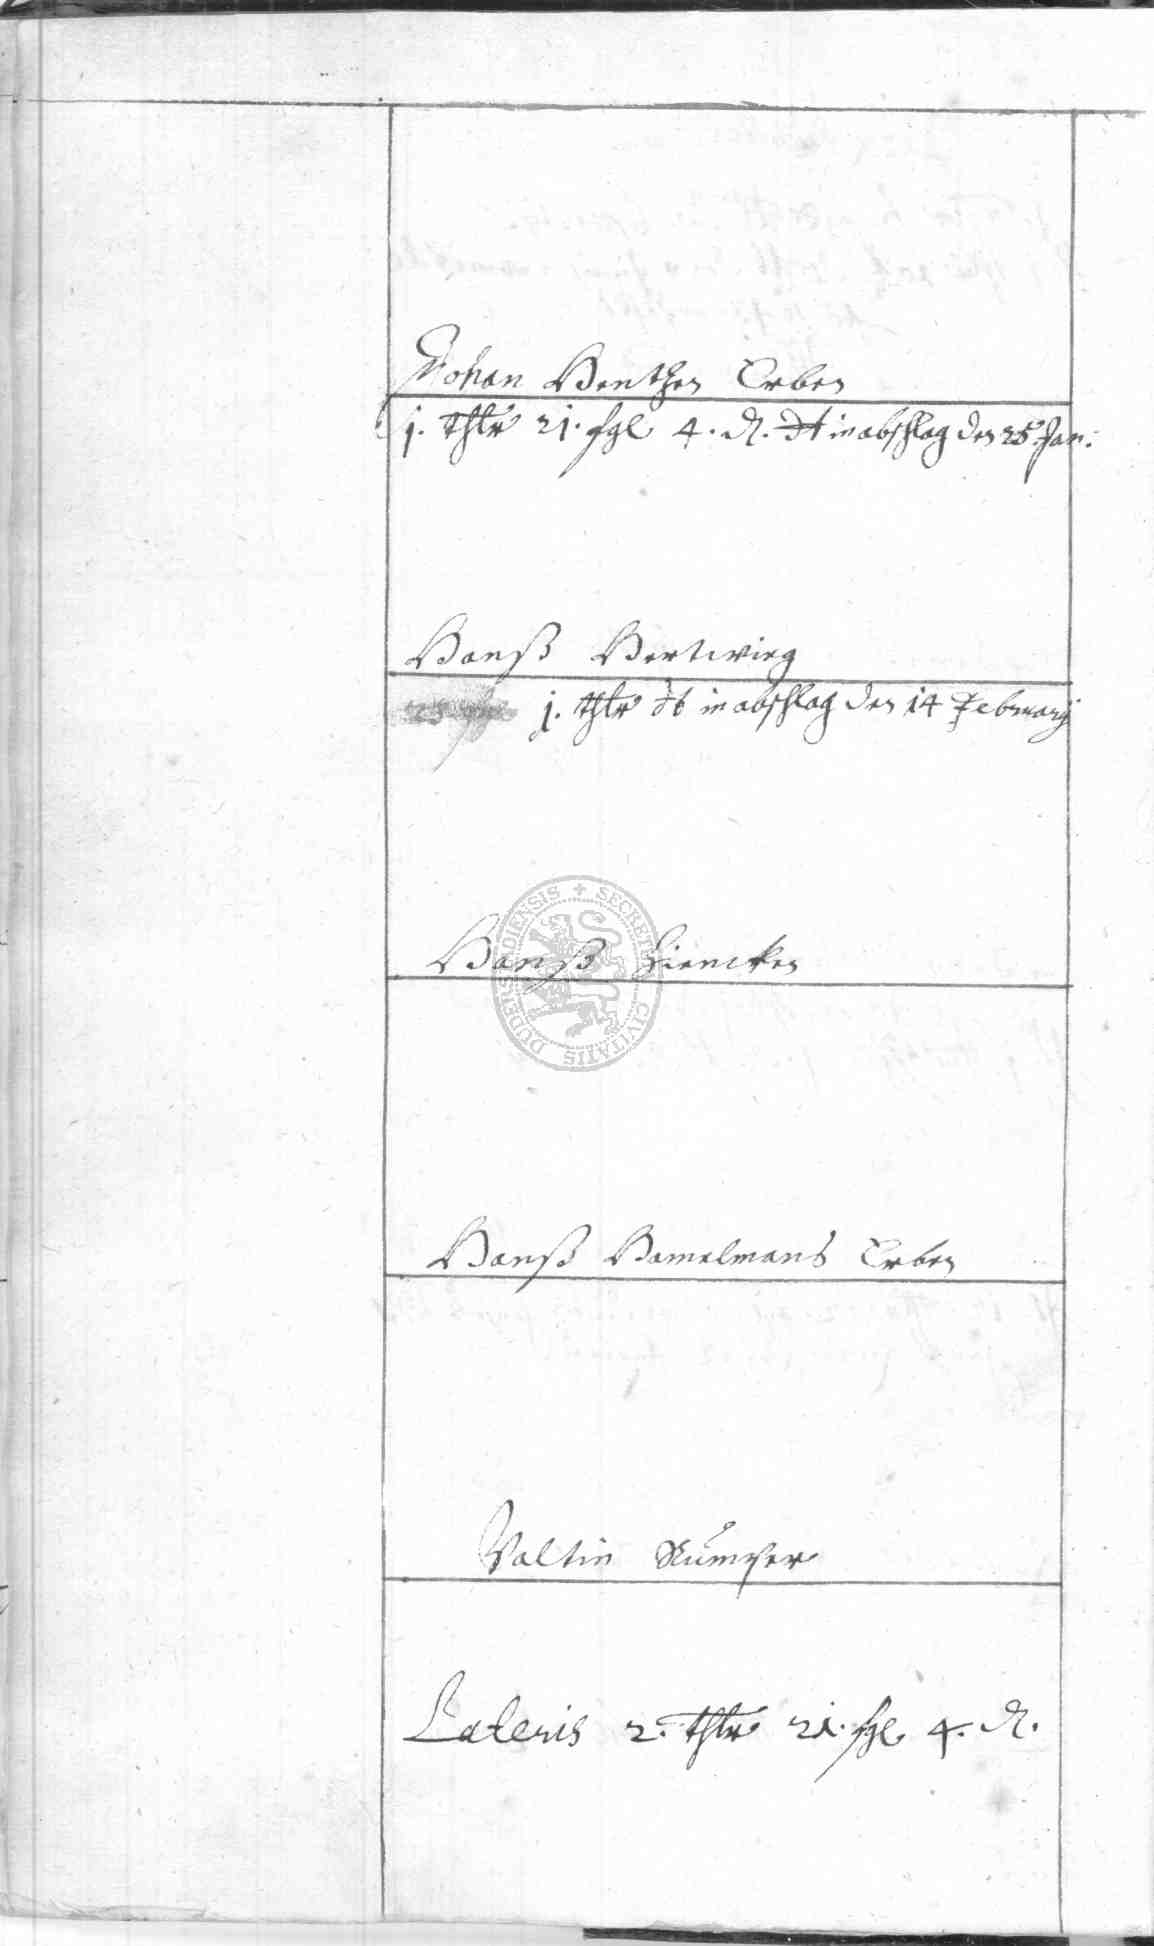 Johan Benthen Erben
1. Thlr 21. sgl 4. d. dt in abschlag den 25 Jan:
Hanß Hertwieg
1. thlr dt in abschlag den 14 February
Hanß Hiencken
Hanß Hamelmans Erben
Valtin
Lateris 2. thlr 21. sgl 4. d.
SECRETE CIVITATIS DUDERSTADIENSIS